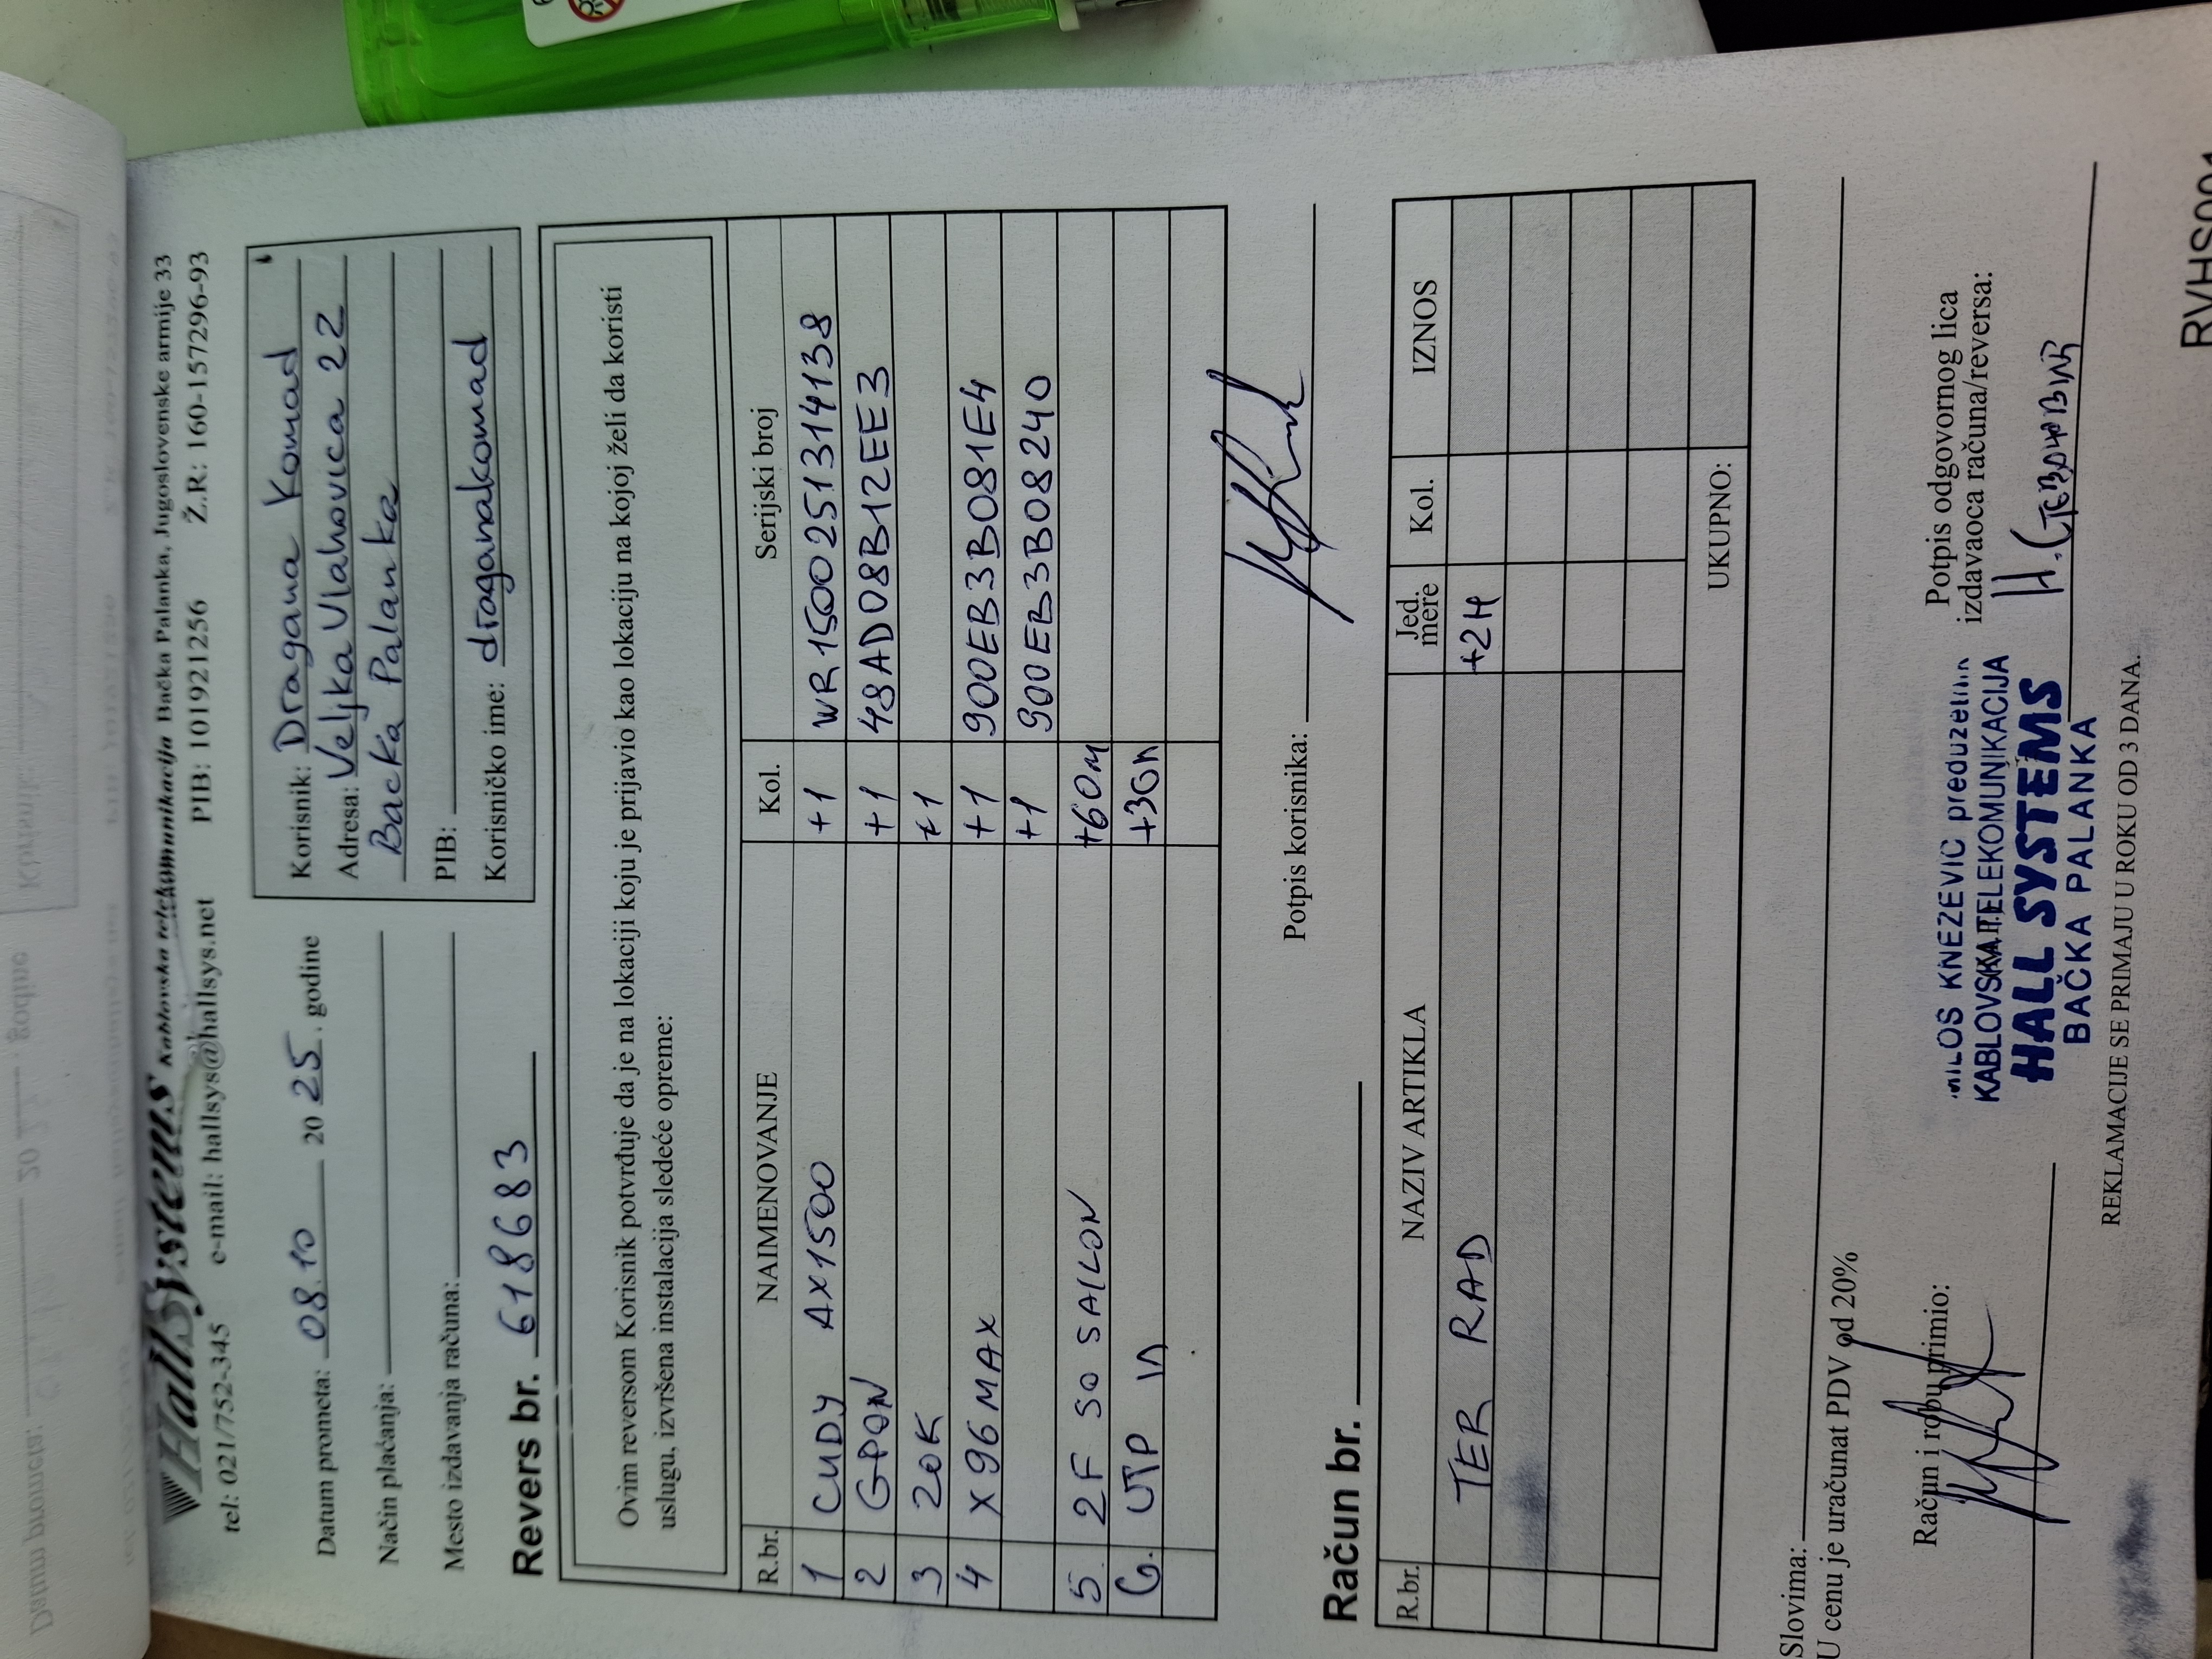 HallSystems Kablovska telekomunikacija Bačka Palanka, Jugoslovenske armije 33
tel: 021/752-345 e-mail: hallsys@hallsys.net PIB: 101921256 Ž.R: 160-157296-93
Datum prometa: 08.10 20 25. godine
Način plaćanja:
Mesto izdavanja računa:
Korisnik: Dragana Komad
Adresa: Veljka Vlahovica 22
Backa Palanka
PIB:
Korisničko ime: draganakomad
Revers br. 618683
Ovim reversom Korisnik potvrđuje da je na lokaciji koju je prijavio kao lokaciju na kojoj želi da koristi
uslugu, izvršena instalacija sledeće opreme:
R.br. NAIMENOVANJE Kol. Serijski broj
1 CUDY AX1500 +1 WR1500251314138
2 GPON +1 48AD08B12EE3
3 ZOK +1
4 X96MAX +1 900EB3B081E4
+1 900EB3B08240
5. 2F SO SAJLON +60m
6. UTP +30m
Potpis korisnika:
Račun br.
R.br. NAZIV ARTIKLA Jed. mere Kol. IZNOS
TER RAD +2H
UKUPNO:
Slovima:
U cenu je uračunat PDV od 20%
Račun i robu primio:
MILOS KNEZEVIC preduzetnik
KABLOVSKA TELEKOMUNIKACIJA
HALL SYSTEMS
BAČKA PALANKA
Potpis odgovornog lica
izdavaoca računa/reversa:
REKLAMACIJE SE PRIMAJU U ROKU OD 3 DANA.
RVHS001